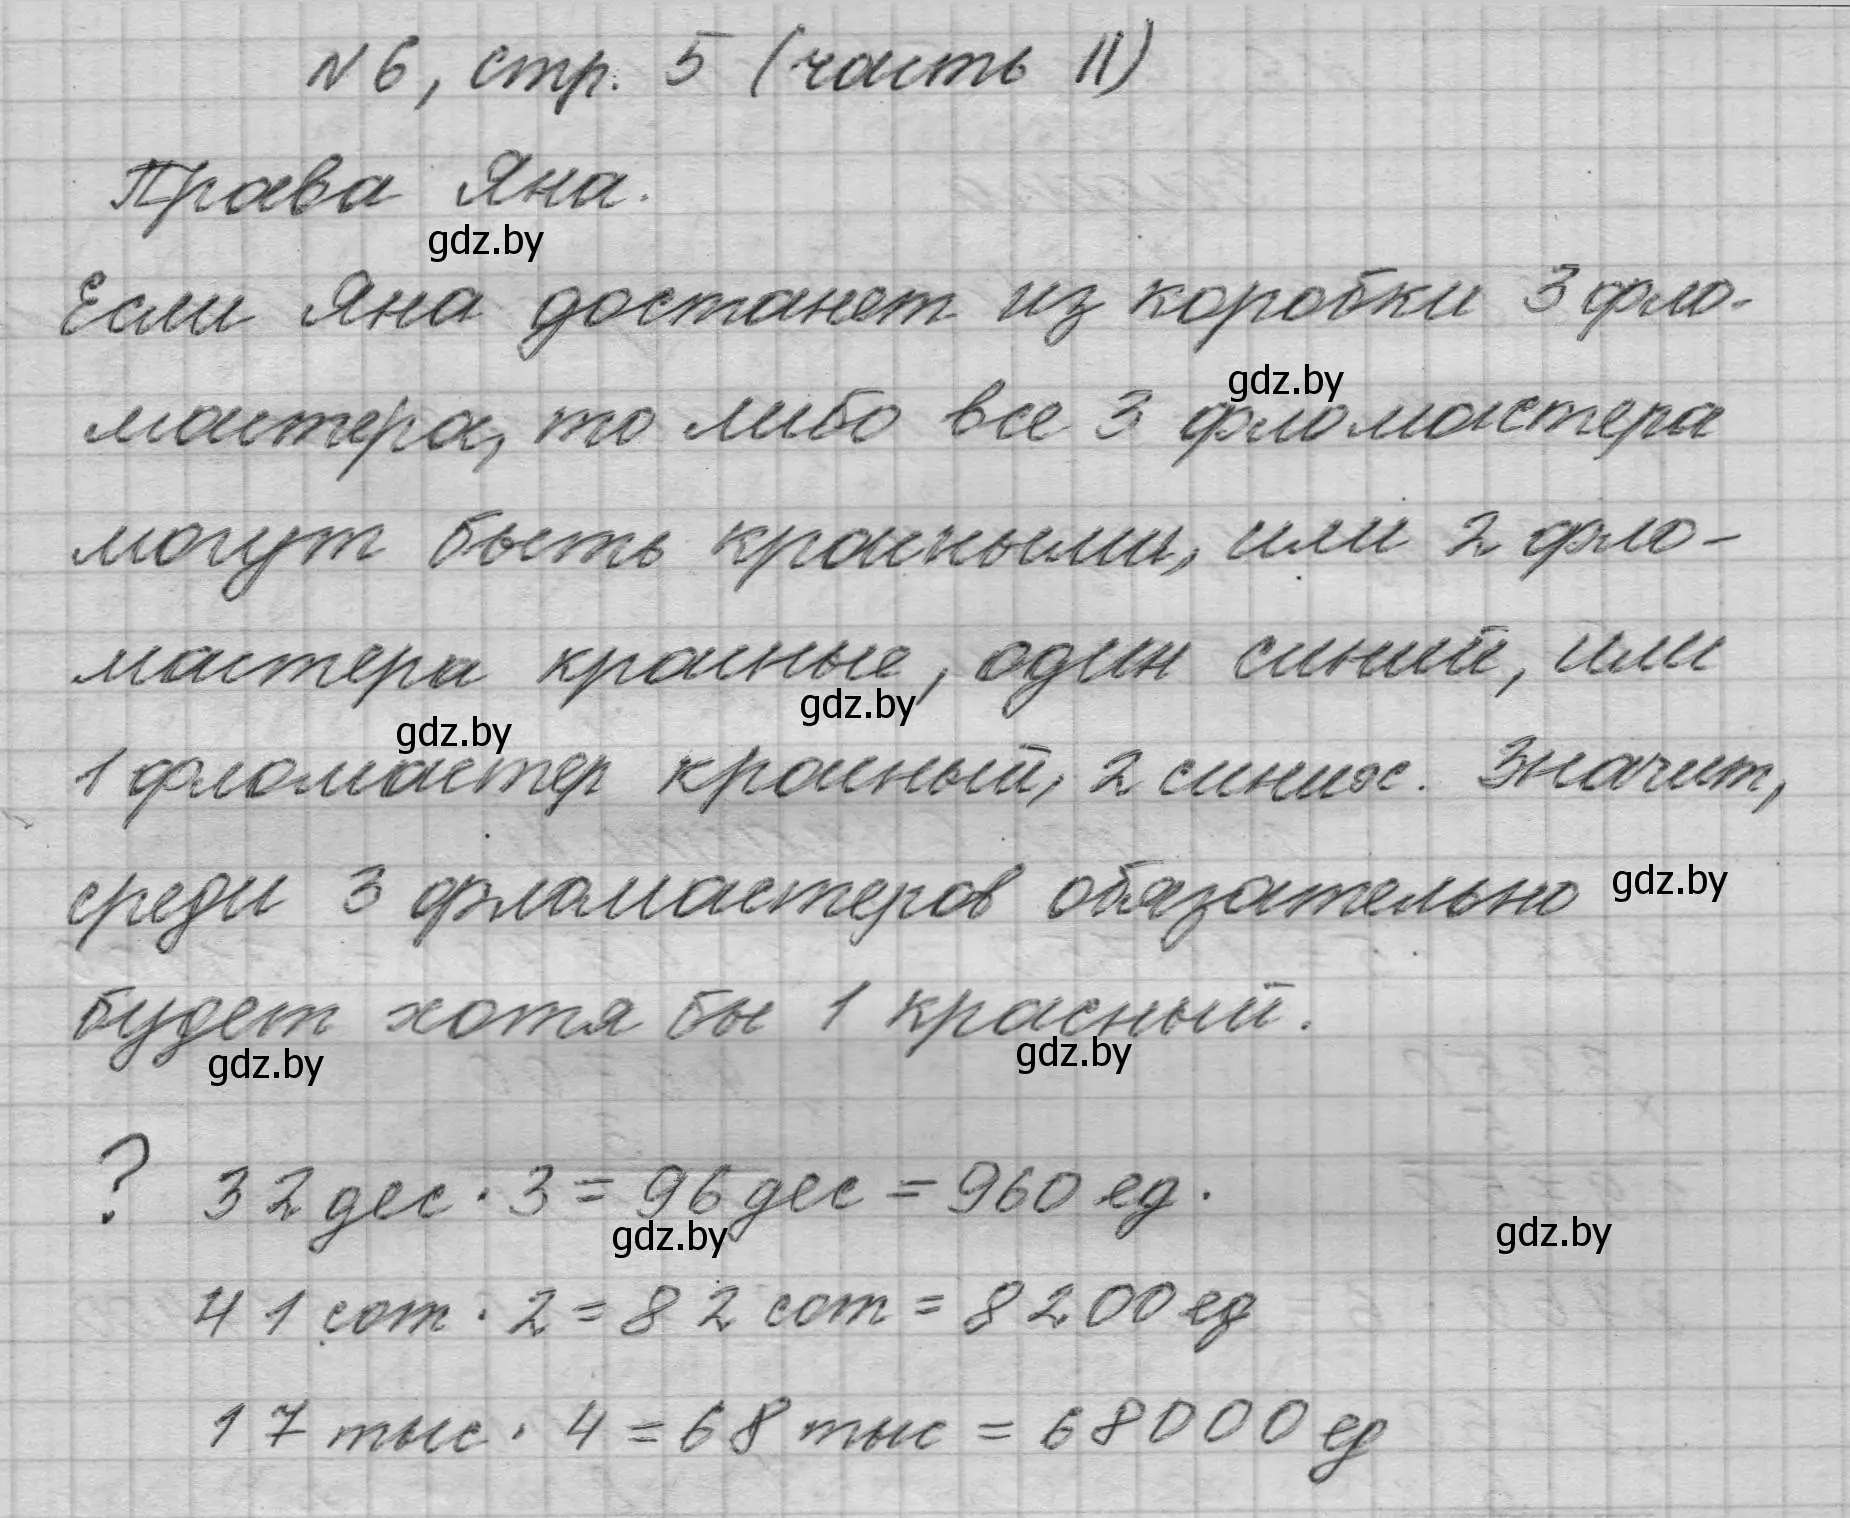 №6, стр. 5 (часть II)
Права Яна.
gdz.by
Если Яна достанет из коробки 3 фло-
gdz.by
мастера, то либо все 3 фломастера
могут быть красными, или 2 фло-
мастера красные, один синий, или
gdz.by
gdz.by
1 фломастер красный, 2 синих. Значит,
среди 3 фломастеров обязательно
gdz.by
будет хотя бы 1 красный.
gdz.by
gdz.by
? 32 дес · 3 = 96 дес = 960 ед.
gdz.by
gdz.by
41 сот · 2 = 82 сот = 8200 ед
17 тыс · 4 = 68 тыс = 68000 ед